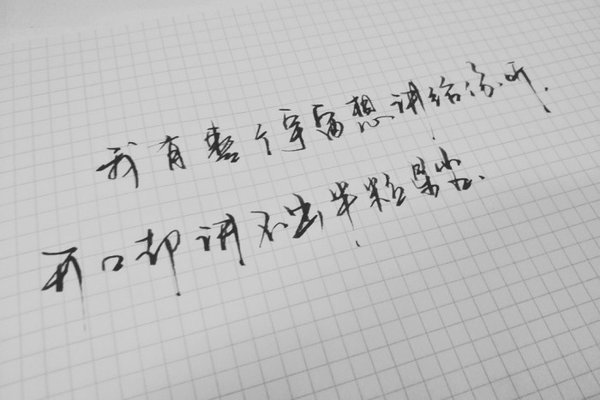 我有整个宇宙想讲给你听.
开口却讲不出半粒星尘.